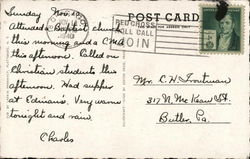 Sunday Nov.
Attended Baptist church
this morning and a C.M.A.
this afternoon. Called on
Christian students this
afternoon. Had supper
at Edman's. Very warm
tonight and rain.
Charles
POST CARD
RED CROSS
ROLL CALL
JOIN
1940
Mr. C.H. Troutman
317 N. McKean St.
Butler, Pa.